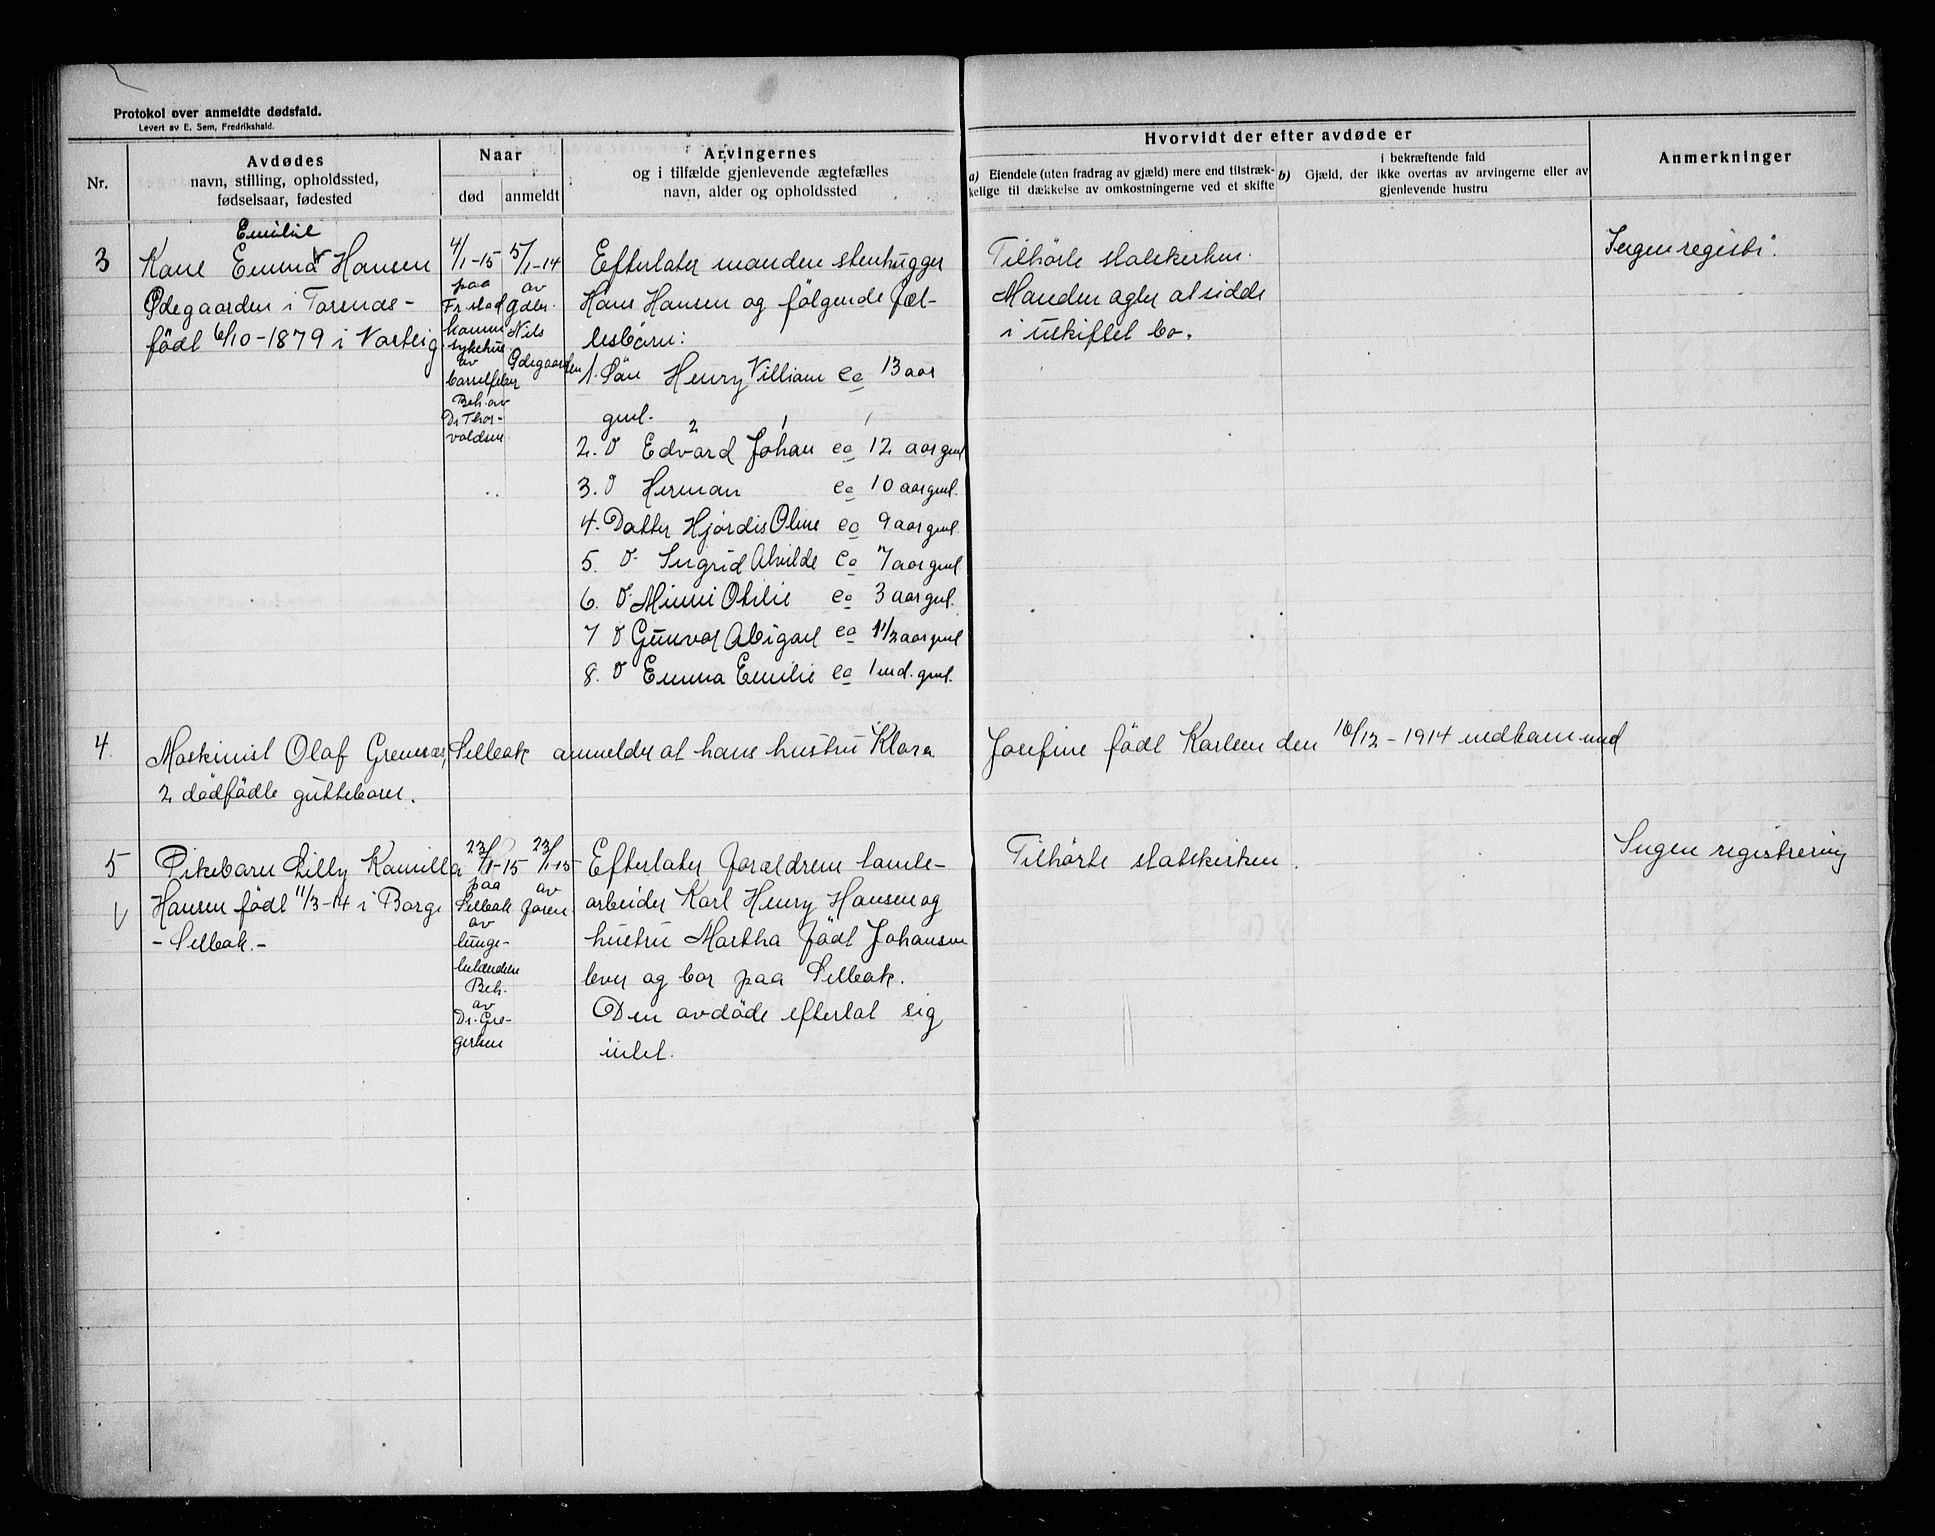 Protokol over anmeldte dødsfald.
Levert av E. Sem, Fredrikshald.
Nr.
Avdødes
navn, stilling, opholdssted,
fødselsaar, fødested
Naar
død
anmeldt
Arvingernes
og i tilfælde gjenlevende ægtefælles
navn, alder og opholdssted
Hvorvidt der efter avdøde er
a) Eiendele (uten fradrag av gjæld) mere end tilstræk-
kelige til dækkelse av omkostningerne ved et skifte
b)
i bekræftende fald
Gjæld, der ikke overtas av arvingerne eller av
gjenlevende hustru
Anmerkninger
3
Emilie
Kone Emma Hansen
Ødegaarden i Torsnæs-
født 6/10-1879 i Varteig
4/1-15
paa
Fr.stad
komm
sykehus
av
barselfeber
Beh. av
Dr Thor-
valdsen
5/1-14
av
Gdbr.
Nils
Ødegaarden
Efterlater manden stenhugger
Hans Hansen og følgende fæl-
lesbørn:
1. Søn Henry Villiam ca 13 aar
gml.
2 1
2. D Edvard Johan ca 12 aar gml
3. D Herman ca 10 aar gml.
4. Datter Hjørdis Oline ca 9 aar gml.
5. D- Ingrid Alvilde ca 7 aar gml
6. D. Minni Otilie ca 3 aar gml.
7 D Gunvor Abigael ca 1 1/2 aar gml
8. D Emma Emilie ca 1 md. gml.
Tilhørte statskirken.
Manden agter at sidde
i uskiftet bo.
Ingen registr.
4.
Maskinist Olaf Grensnes, Selbak anmelder at hans hustru Klara Josefine født Karlsen den 10/12-1914 nedkom med
2 dødfødte guttebarn.
5
Pikebarn Lilly Kamilla
Hansen født 11/3-14 i Borge
- Selbak.-
23/1-15
paa
Selbak
av
lunge-
betændelse
Beh.
av
Dr. Gre-
gersen
23/1-15
av
faren
Efterlater forældrene tomte-
arbeider Karl Henry Hansen og
hustru Martha født Johansen
lever og bor paa Selbak.
Den avdøde efterlot sig
intet.
Tilhørte statskirken.
Ingen registrering